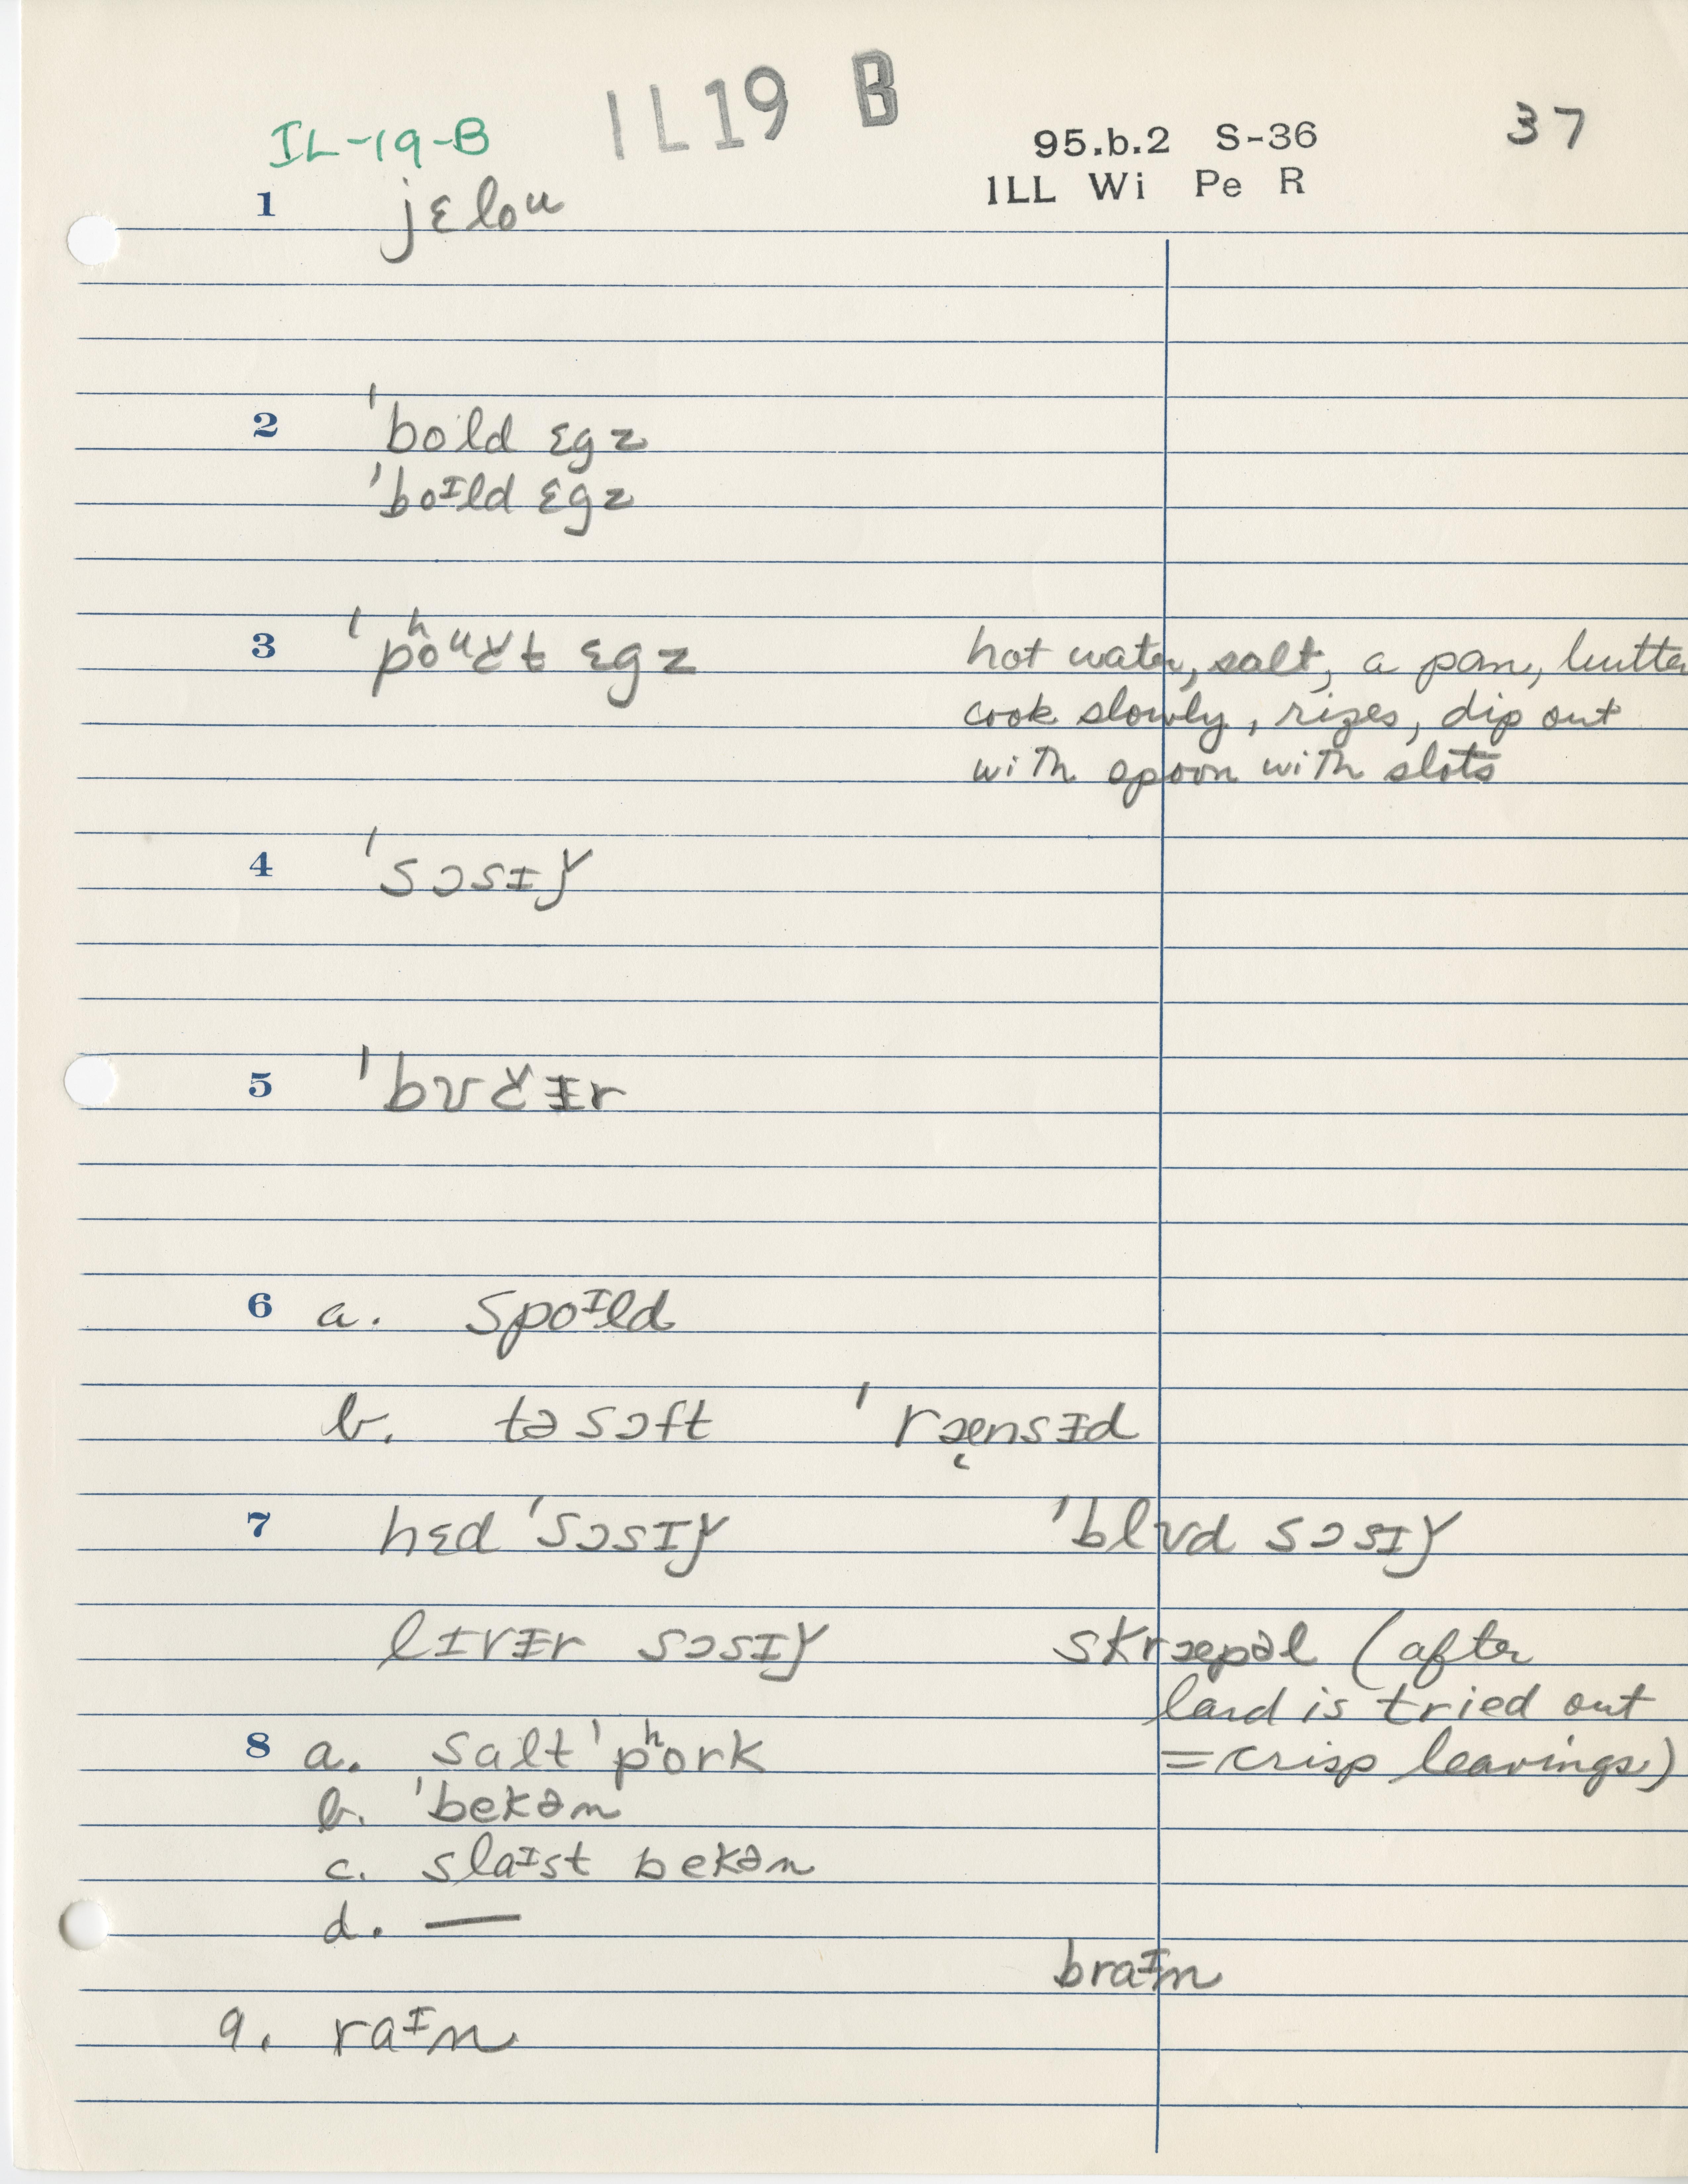 IL-19-B
IL19 B
95.b.2 S-36
ILL Wi Pe R
37
1 jɛloᵘ
2 ˈbold ɛgz
ˈboᶦld ɛgz
3 ˈpʰoᵘɚt ɛgz hot water, salt, a pan, butter
cook slowly, rizes, dip out
with spoon with slots
4 ˈsɔsɪɣ
5
6 a. spoᶦld
b. tə sɔft ˈræ̨nsɨd
7 hɛd ˈsɔsɪɣ ˈblʊd sɔsɪɣ
lɪvɨr sɔsɪɣ skræpəl (after
lard is tried out
= crisp leavings)
8 a. salt ˈpʰork
b. ˈbekən
c. slaᶦst bekən
d. —
braᶦn
9. raᶦn